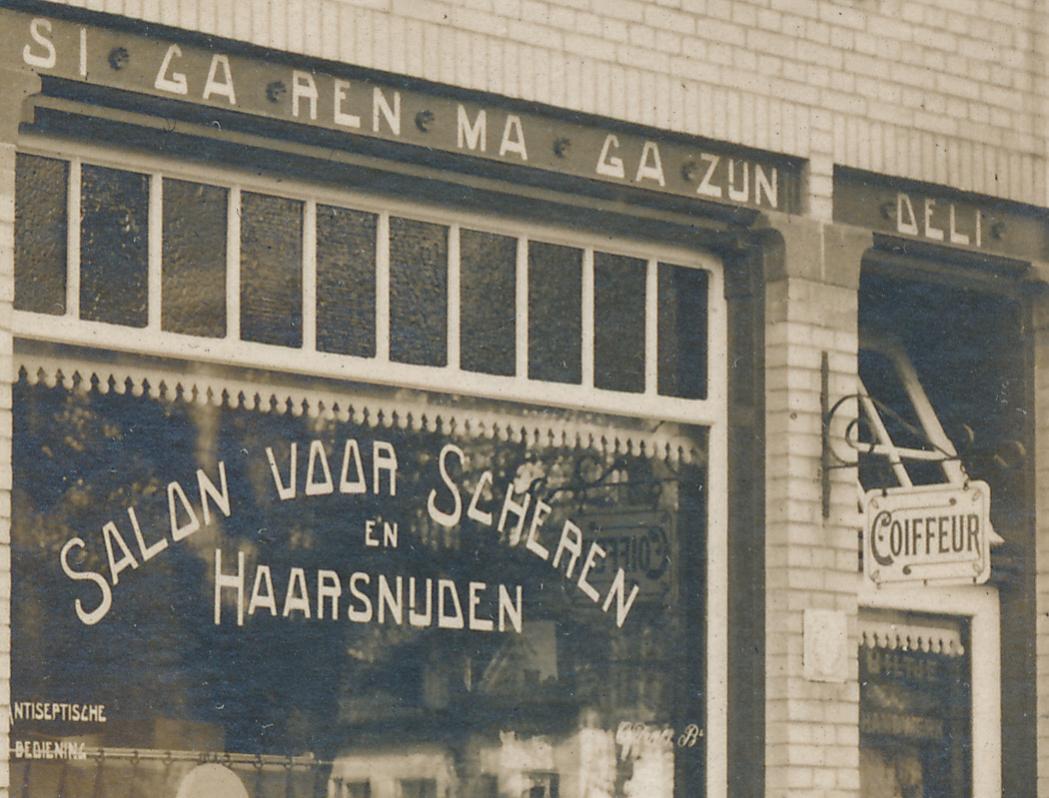 SI·GA·REN·MA·GA·ZIJN
DELI
SALON VOOR SCHEREN
EN
HAARSNIJDEN
COIFFEUR
NTISEPTISCHE
BEDIENING